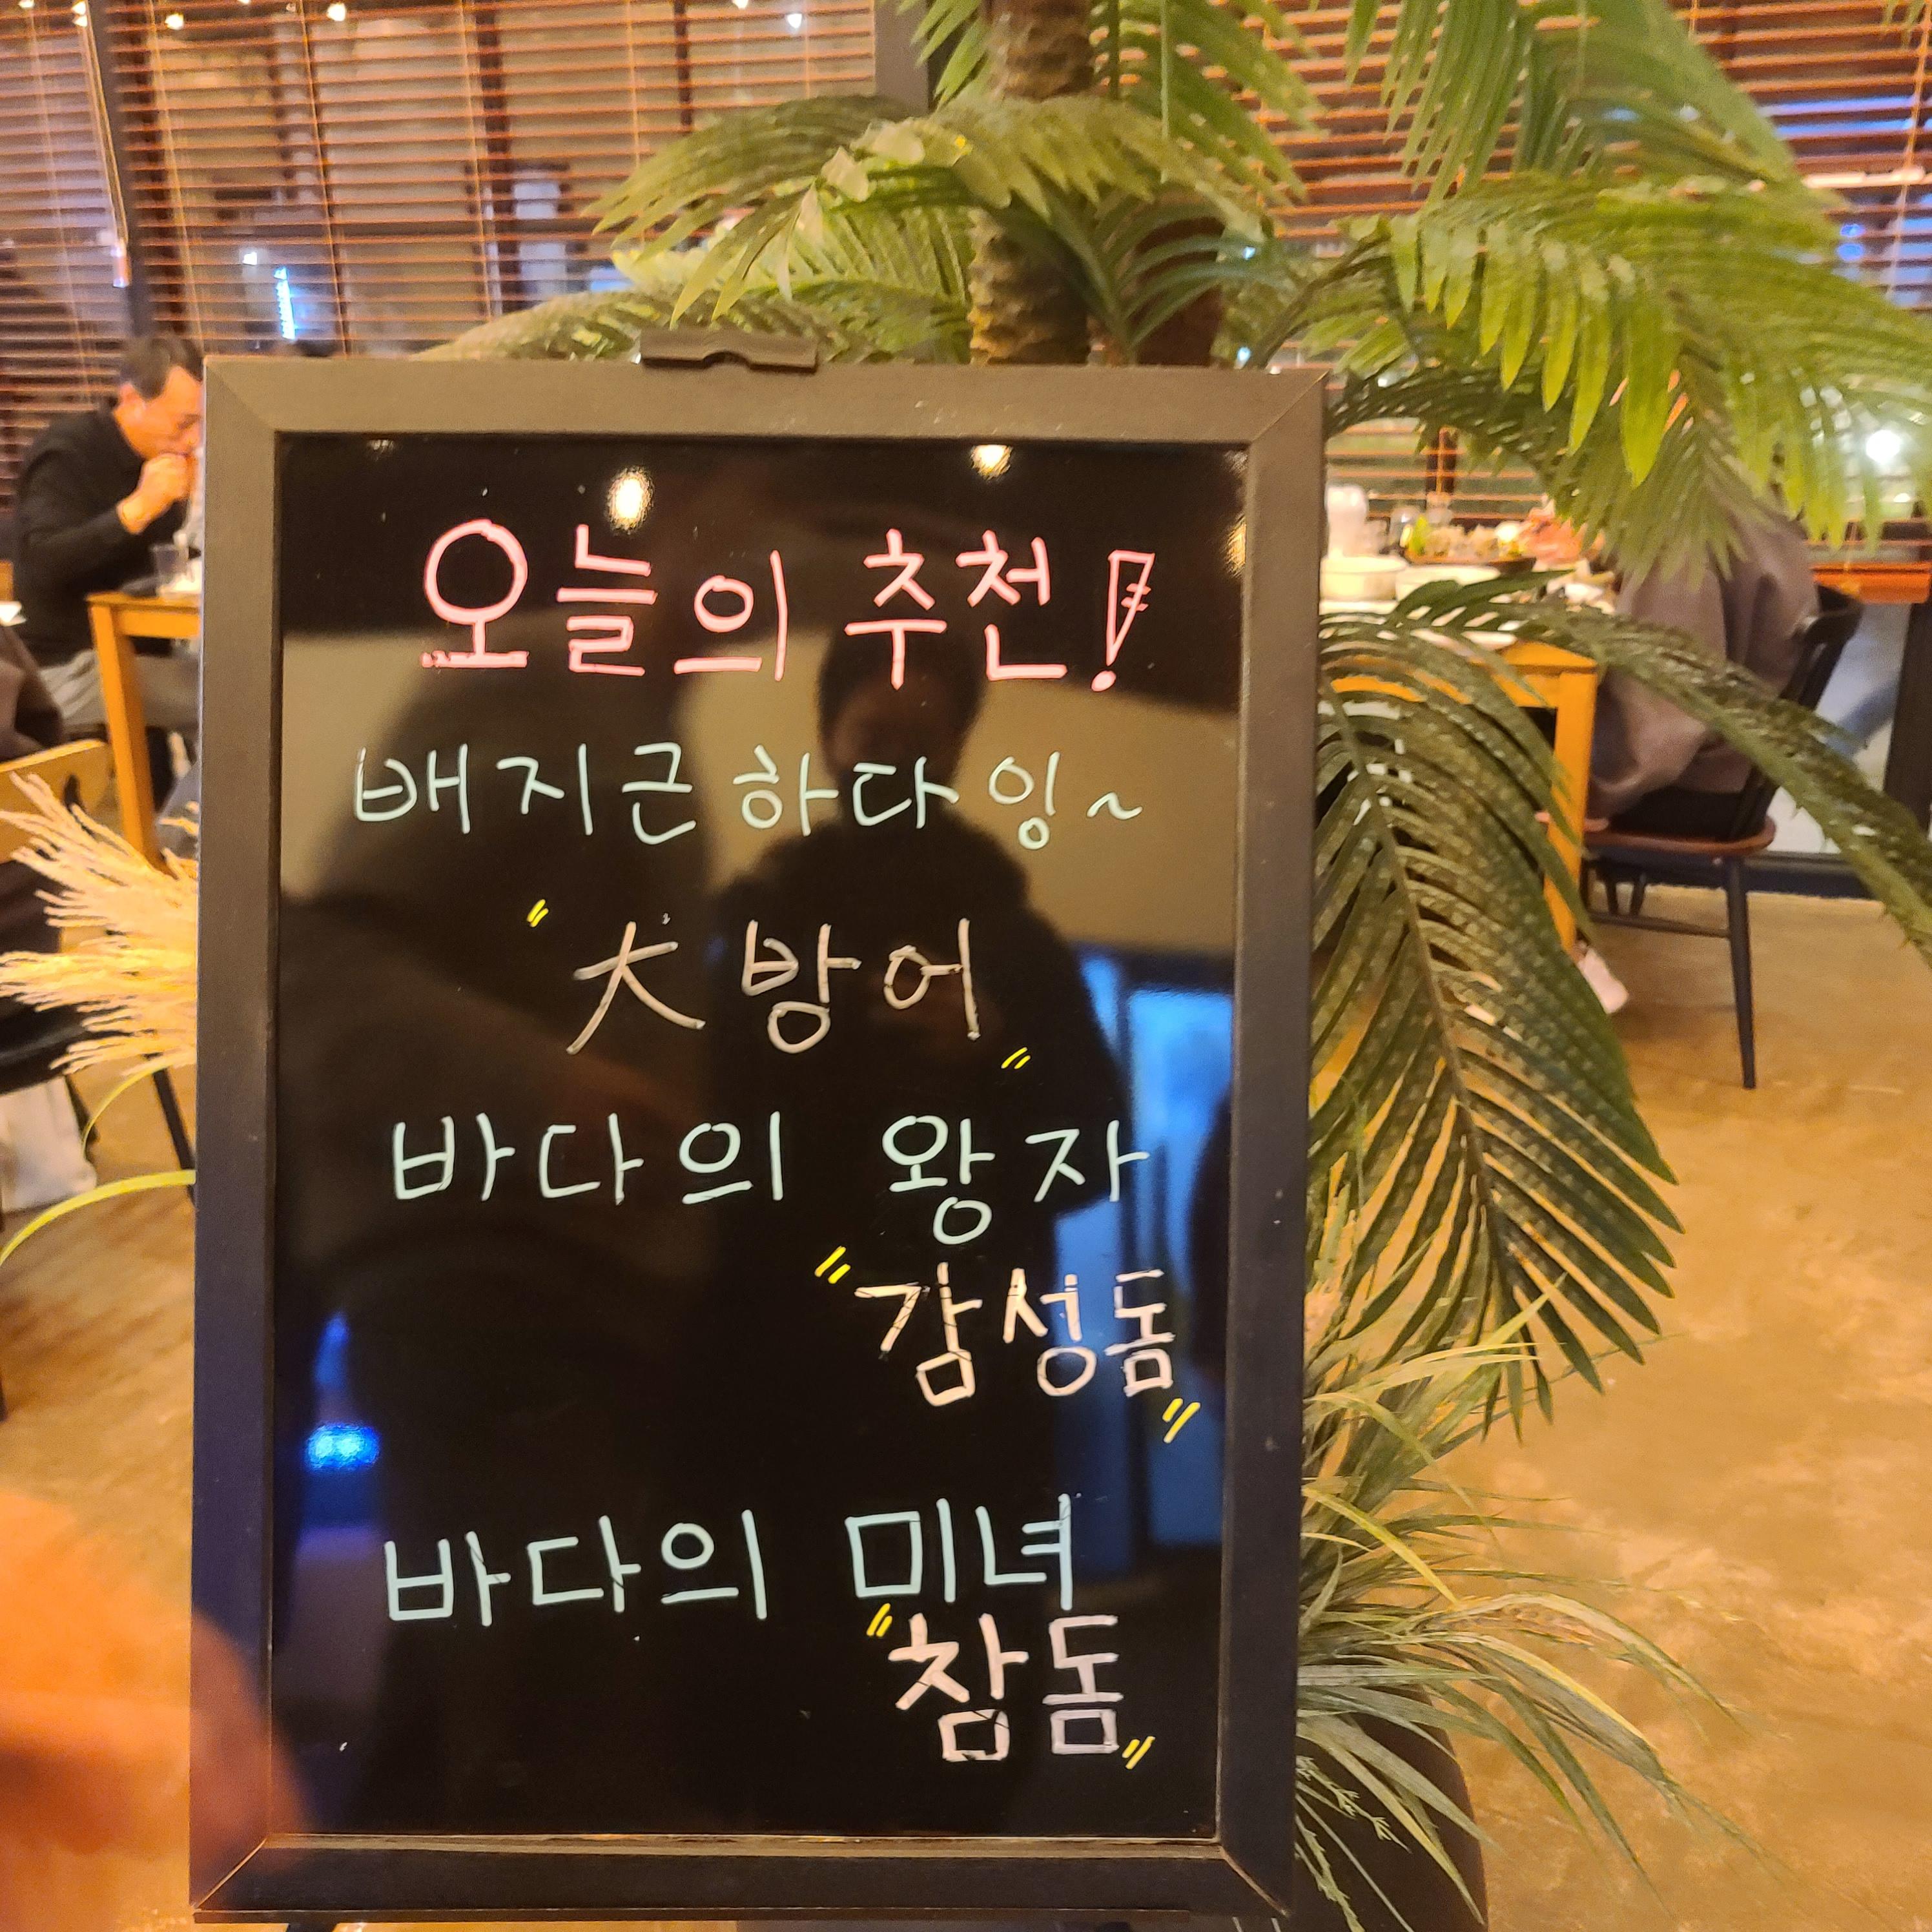 오늘의 추천!
배지근하다잉~
"大방어"
바다의 왕자
"감성돔"
바다의 미녀
"참돔"